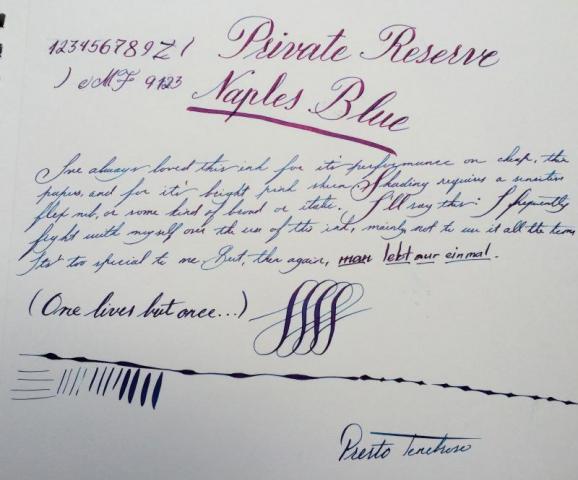 123456789Z( Private Reserve
) MF 9123 Naples Blue
I've always loved this ink for its performance on cheap, thin
papers, and for it's bright pink sheen. Shading requires a sensitive
flex nib, or some kind of broad or italic. I'll say this: I frequently
fight with myself over the use of this ink, mainly not to use it all the time.
It's too special to me. But, then again, man lebt nur einmal.
(One lives but once...)
Presto Tenebroso